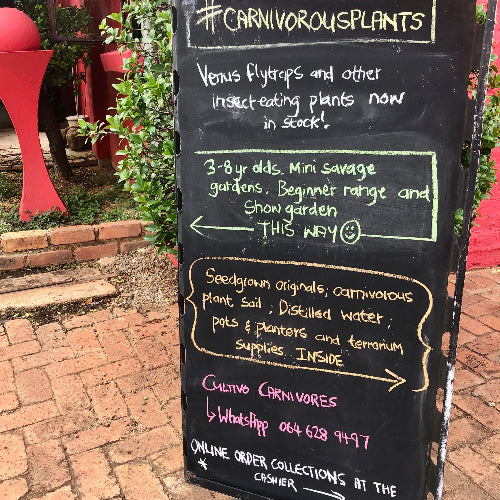 #CARNIVOROUSPLANTS
Venus flytraps and other
insect-eating plants now
in stock!
3-8yr olds. Mini savage
gardens. Beginner range and
Show garden
THIS WAY
Seedgrown originals; carnivorous
plant soil; Distilled water;
pots & planters and terrarium
supplies. INSIDE
CULTIVO CARNIVORES
WhatsApp 064 628 9497
ONLINE ORDER COLLECTIONS AT THE
* CASHIER